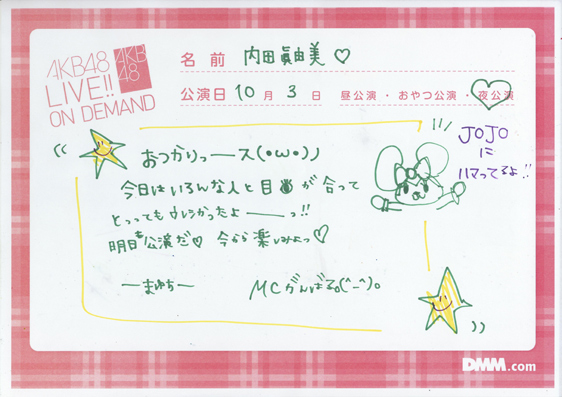 AKB48
LIVE!!
ON DEMAND
AKB
48
名前 内田眞由美♡
公演日 10月3日 昼公演・おやつ公演・夜公演
おつかりっース(・ω・)ノ
今日はいろんな人と目が合って
とっってもウレシかったよーっ!!
明日も公演だ♡ 今から楽しみよっ♡
ーまゆちー
MCがんばる。(^_^)。
JOJO
に
ハマってるよ!!
DMM.com